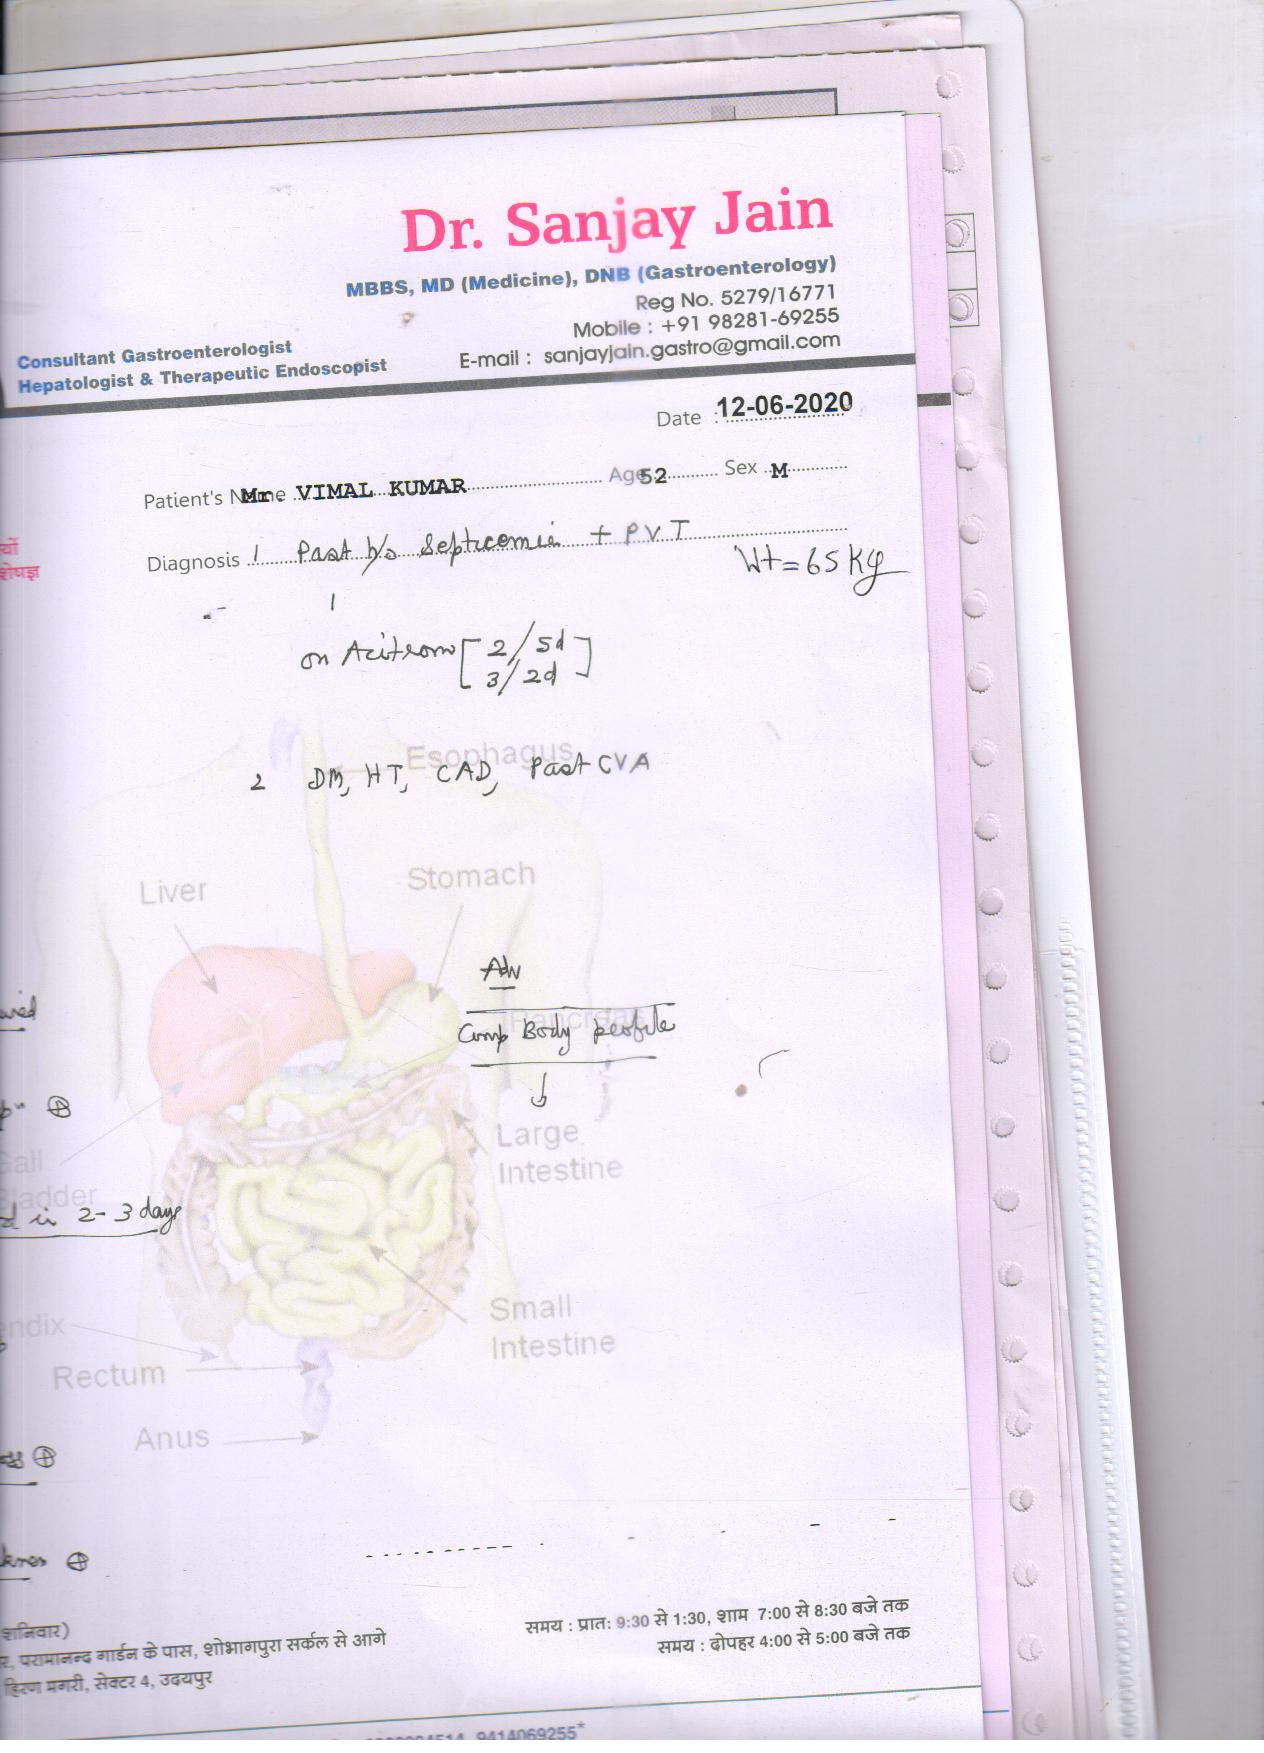 Dr. Sanjay Jain
MBBS, MD (Medicine), DNB (Gastroenterology)
Reg No. 5279/16771
Mobile : +91 98281-69255
E-mail : sanjayjain.gastro@gmail.com
Consultant Gastroenterologist
Hepatologist & Therapeutic Endoscopist
Date : 12-06-2020
Patient's Name Mr. VIMAL KUMAR Age 52 Sex M
Diagnosis 1 Past h/o Septicemia + PVT
Wt = 65 Kg
on Acitrom [ 2/5d
3/2d ]
2 DM, HT, CAD, Past CVA
Esophagus
Liver
Stomach
Adv
Comp Body profile
Pancreas
Large
Intestine
Gall
Bladder
in 2-3 days
Small
Intestine
endix
Rectum
Anus
शनिवार)
समय : प्रातः 9:30 से 1:30, शाम 7:00 से 8:30 बजे तक
र, परामानन्द गार्डन के पास, शोभागपुरा सर्कल से आगे
समय : दोपहर 4:00 से 5:00 बजे तक
हिरण मगरी, सेक्टर 4, उदयपुर
9414069255*